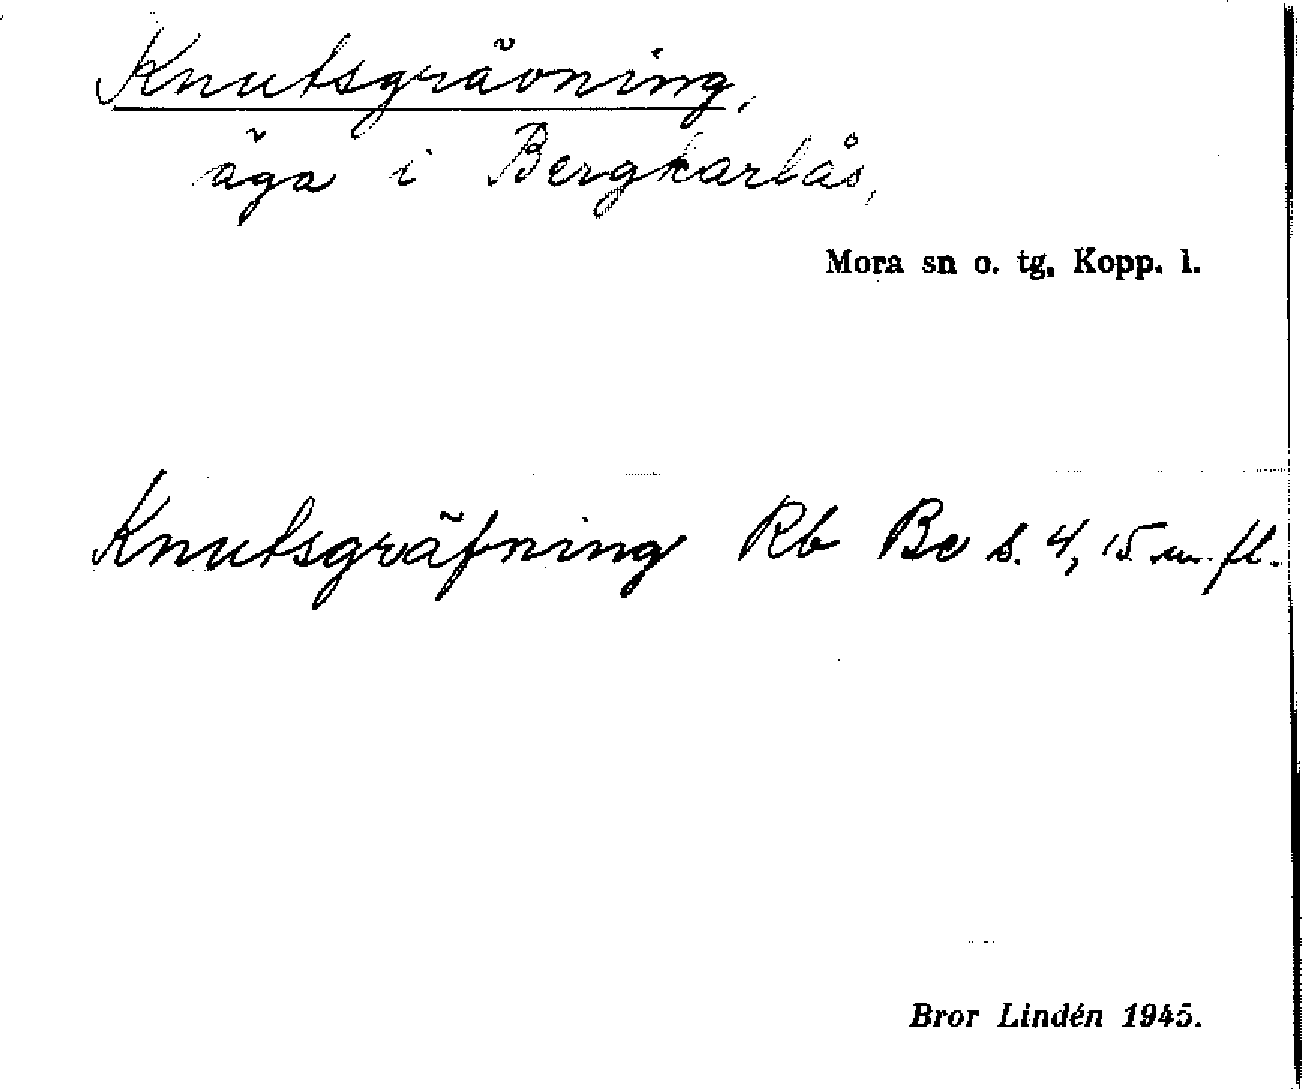 Knutsgrävning,
äga i Bergkarlås,
Mora sn o. tg, Kopp. l.
Knutsgräfning Rb Be s. 4, 15 m. fl.
Bror Lindén 1945.